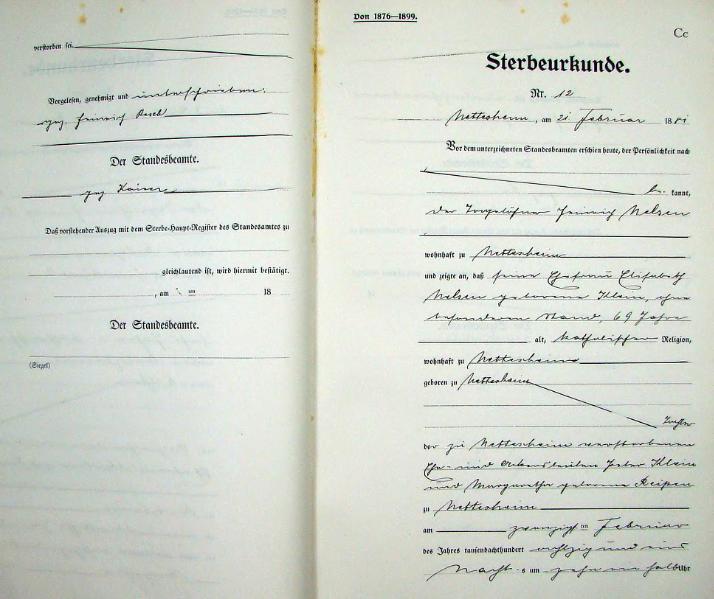 verstorben sei
Vorgelesen, genehmigt und unterschrieben.
gez. Heinrich
Der Standesbeamte.
gez. Kaiser
Daß vorstehender Auszug mit dem Sterbe-Haupt-Register des Standesamtes zu
gleichlautend ist, wird hiermit bestätigt.
, am 18
Der Standesbeamte.
(Siegel)
Von 1876—1899.
Cc
Sterbeurkunde.
Nr. 12
Nettesheim, am 21 Februar 1881
Vor dem unterzeichneten Standesbeamten erschien heute, der Persönlichkeit nach
be kannt,
der Tagelöhner Heinrich Nelsen
wohnhaft zu Nettesheim
und zeigte an, daß seine Ehefrau Elisabeth
Nelsen geborene Klein, ohne
besonderen Stand, 69 Jahre
alt, katholischer Religion,
wohnhaft zu Nettesheim
geboren zu Nettesheim
Tochter
der zu Nettesheim verstorbenen
Ehe- und Ackersleuten Peter Klein
und Margaretha geborene Reipen
zu Nettesheim
am zwanzigsten Februar
des Jahres tausendachthundert achtzig und eins
Nachts um zehn ein halb Uhr